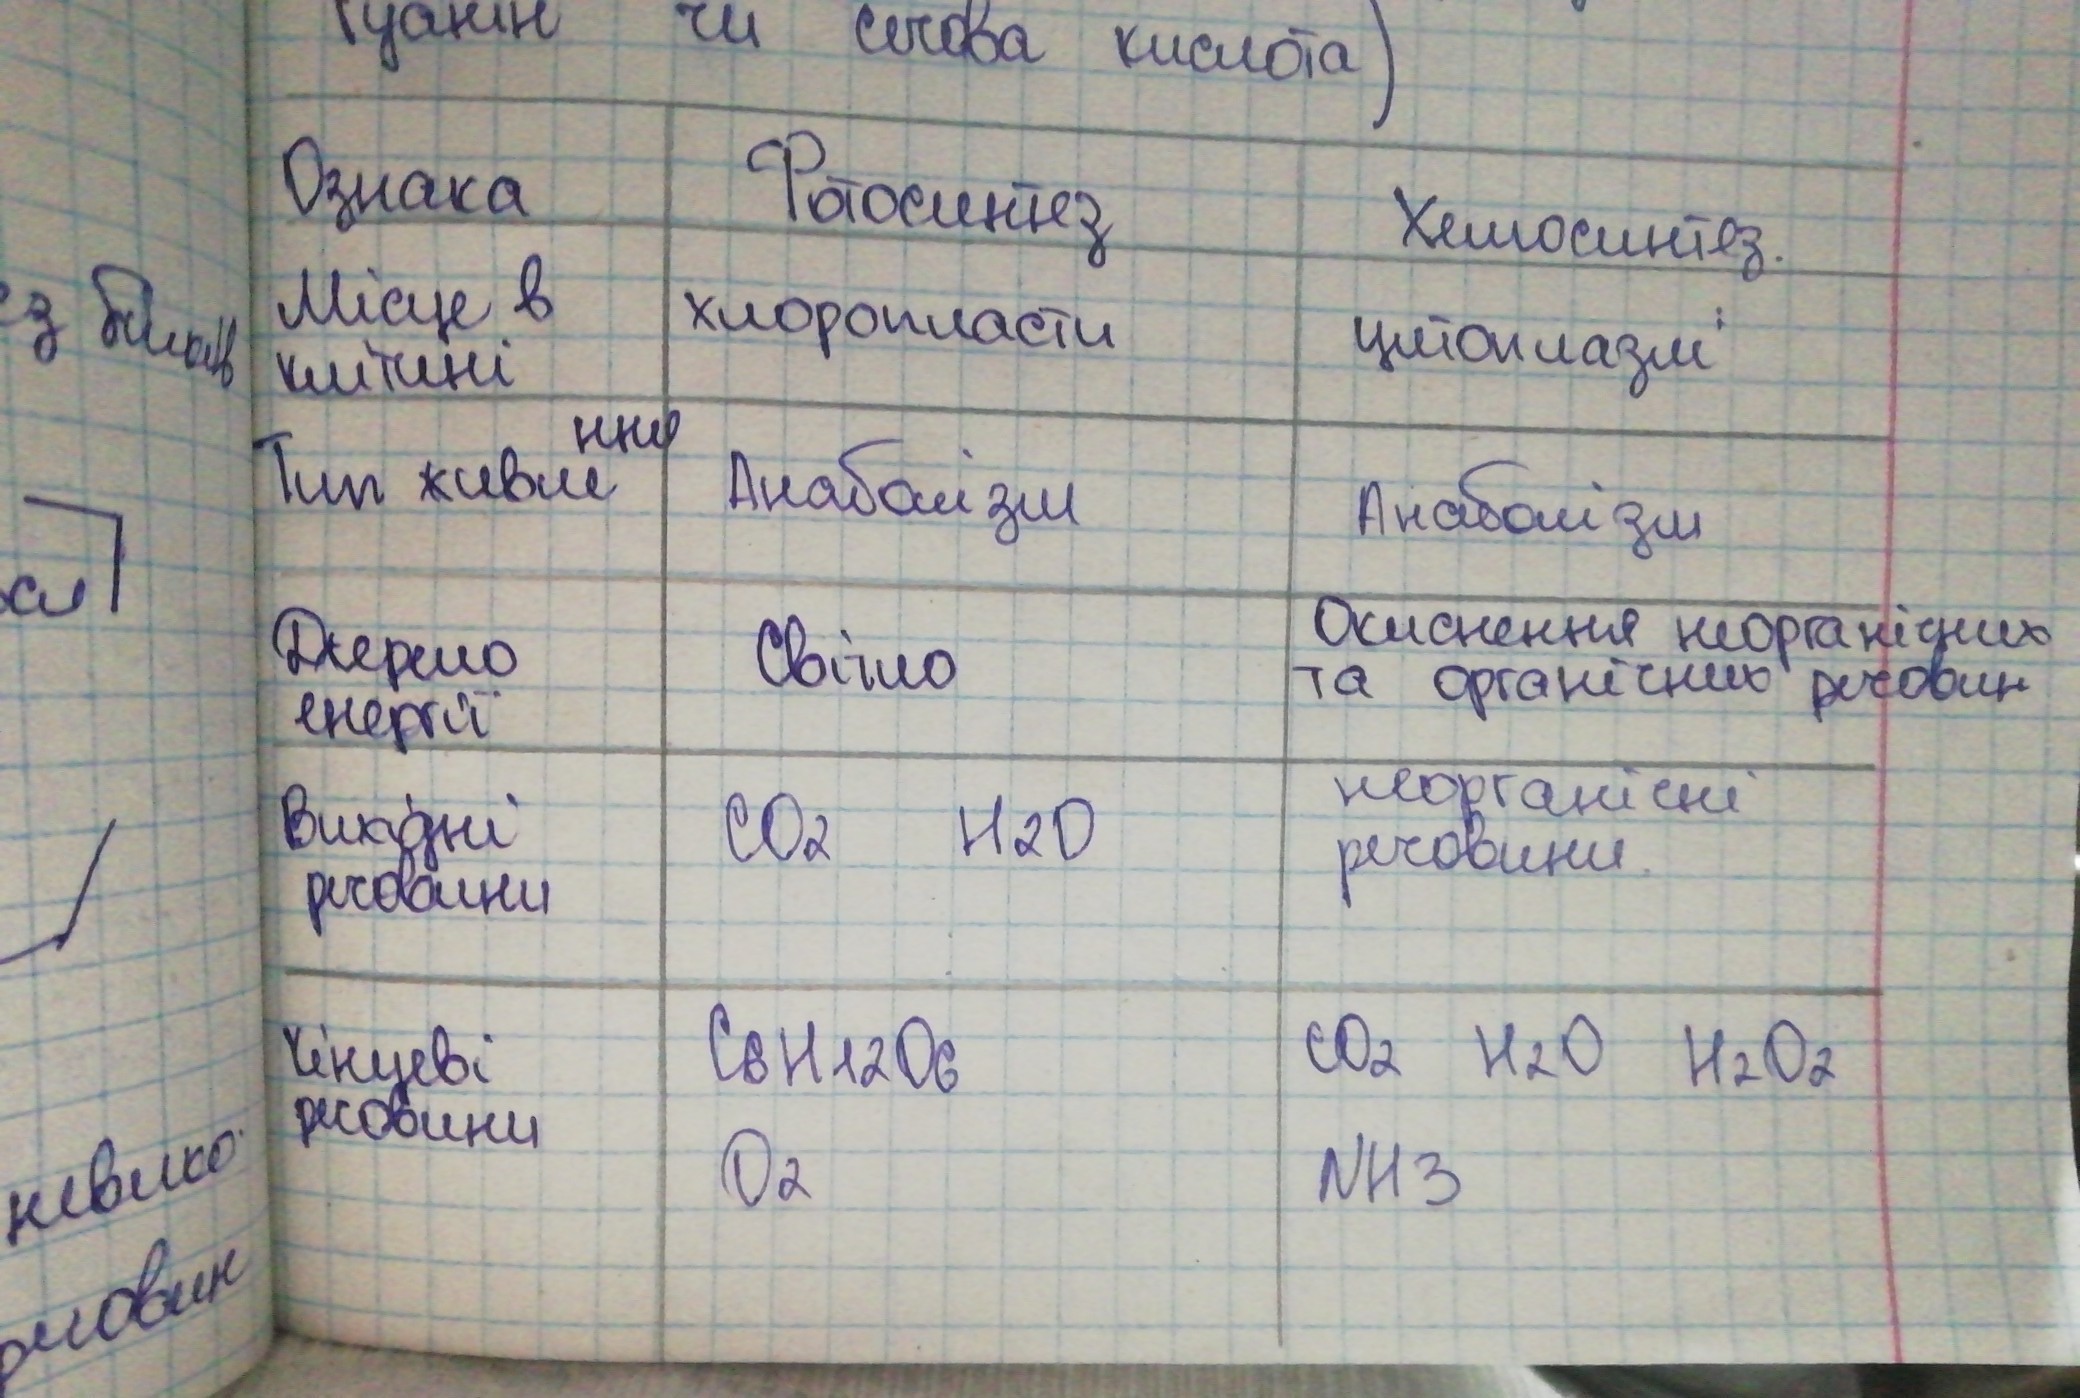 Гуанін чи сечова кислота)
Ознака Фотосинтез Хемосинтез.
Місце в клітині хлоропласти цитоплазмі
Тип живлення Анаболізм Анаболізм
Джерело енергії Світло Окиснення неорганічних
та органічних речовин
Вихідні речовини CO2 H2O неорганічні
речовини.
Кінцеві речовини C6H12O6 CO2 H2O H2O2
O2 NH3
ез білків
невелико
речовин